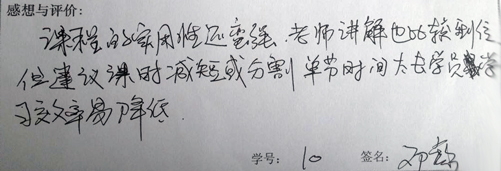 感想与评价:
课程的实用性还蛮强.老师讲解也比较到位
但建议课时减短或分割 单节时间太长学员学
习效率易降低.
学号: 10 签名: 邓